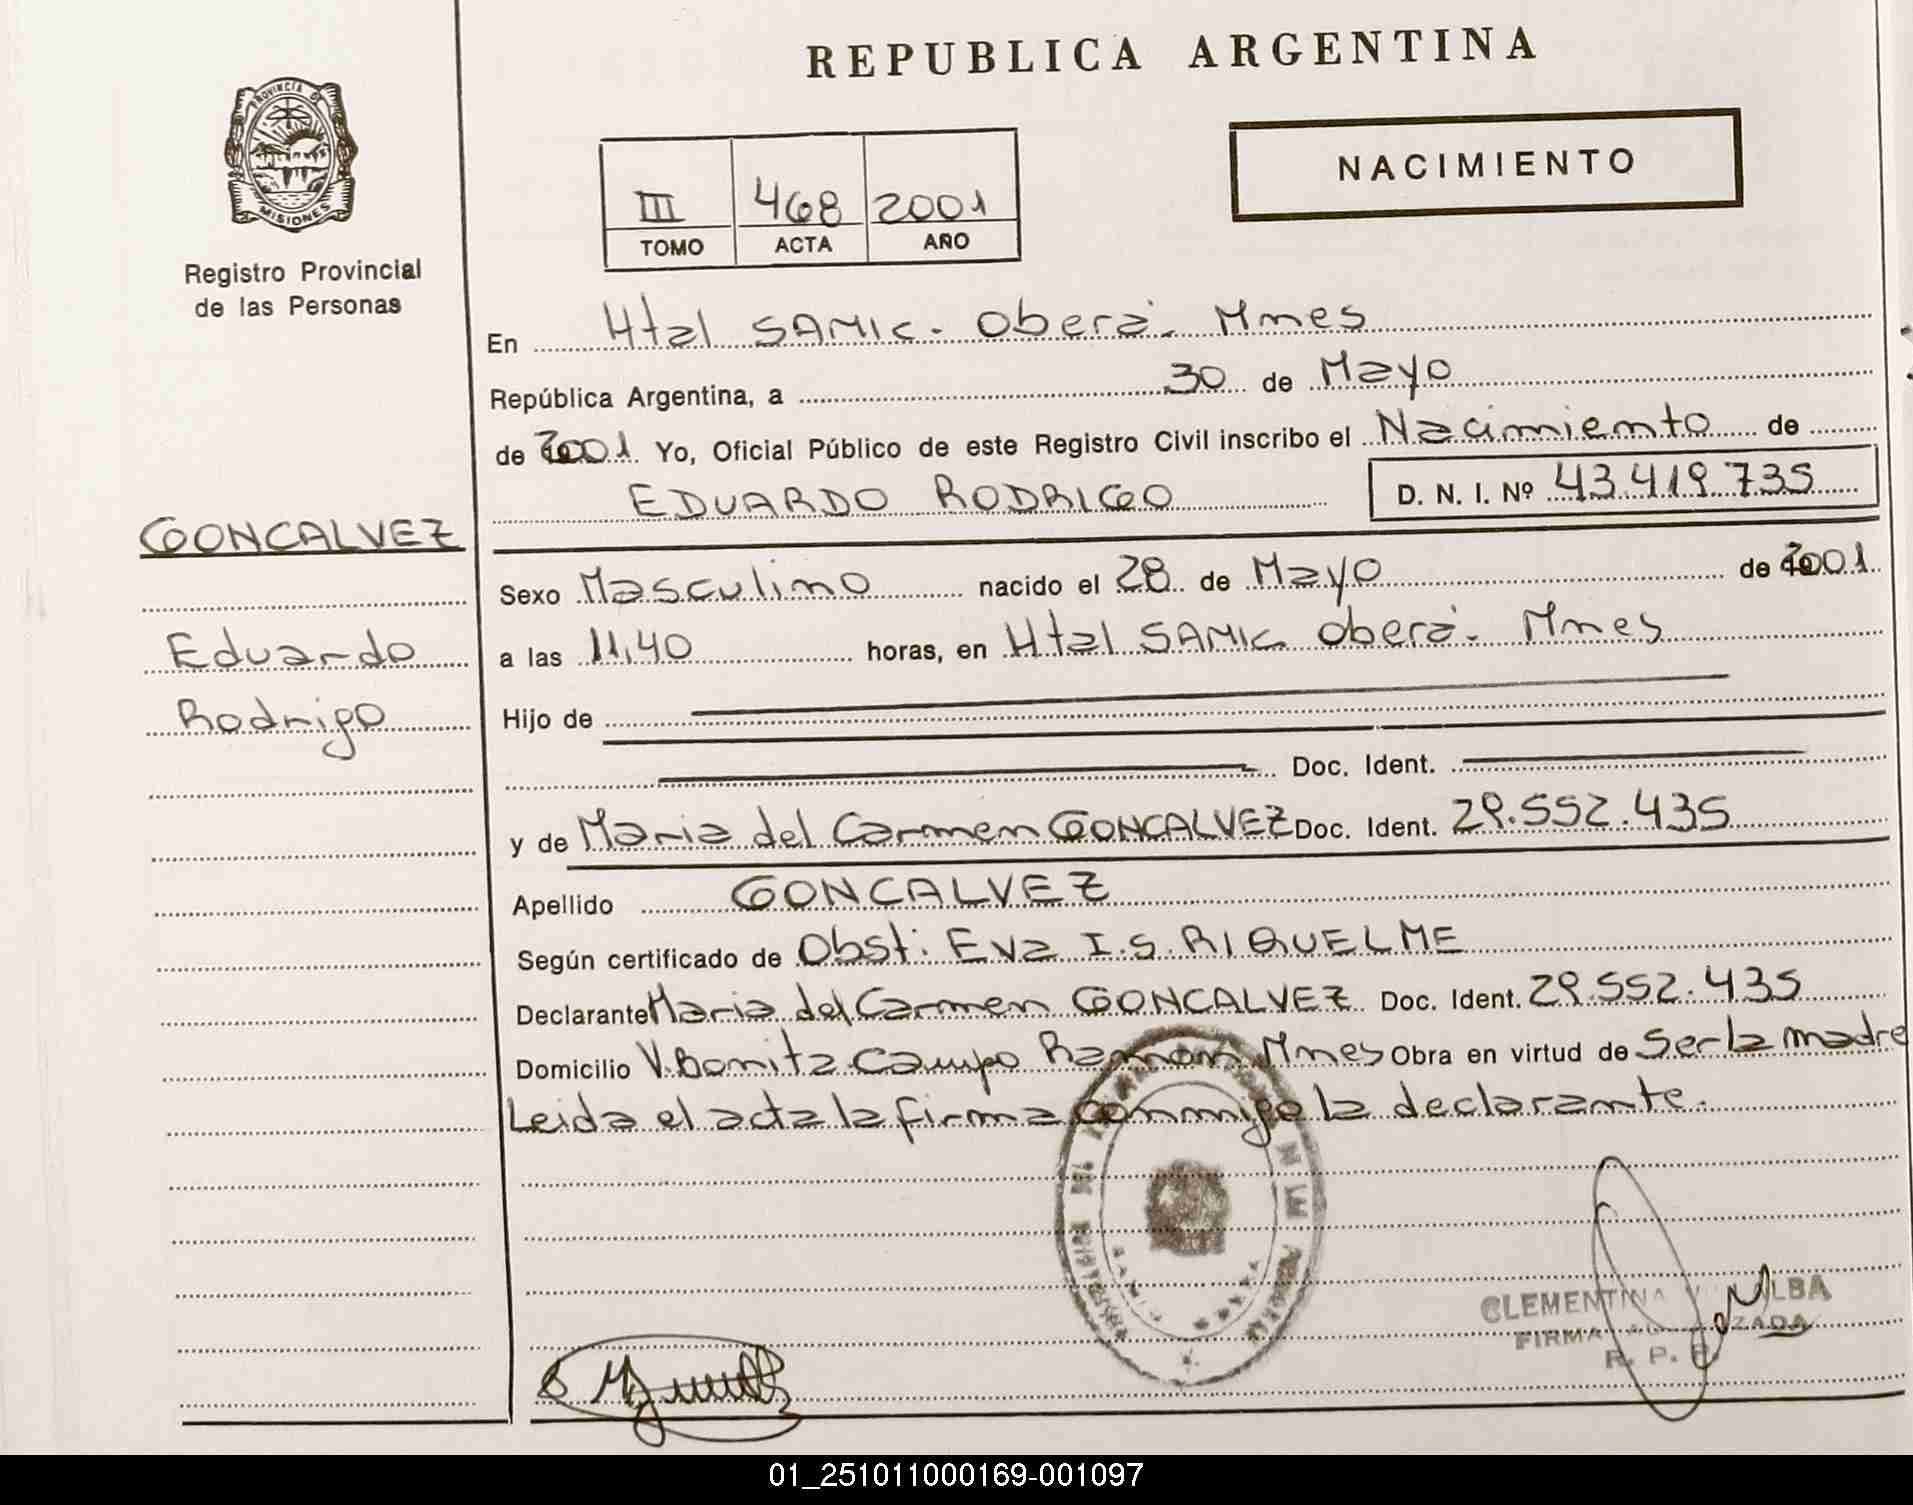 REPUBLICA ARGENTINA
PROVINCIA DE
MISIONES
Registro Provincial
de las Personas
NACIMIENTO
III 468 2001
TOMO ACTA AÑO
En Htal SAMIC. Oberá. Mnes
República Argentina, a 30 de Mayo
de 2001 Yo, Oficial Público de este Registro Civil inscribo el Nacimiento de
EDUARDO RODRIGO D. N. I. Nº 43.419.735
GONCALVEZ
Eduardo
Rodrigo
Sexo Masculino nacido el 28 de Mayo de 2001
a las 11,40 horas, en Htal SAMIC. Oberá. Mnes
Hijo de
Doc. Ident.
y de Maria del Carmen GONCALVEZ Doc. Ident. 29.552.435
Apellido GONCALVEZ
Según certificado de Obst: Eva I.S. RIQUELME
Declarante Maria del Carmen GONCALVEZ Doc. Ident. 29.552.435
Domicilio V.Bonita Campo Ramon Mnes Obra en virtud de Ser la madre
Leida el acta la firma conmigo la declarante.
CLEMENTINA LBA
FIRMA ZADA
R. P. P.
01_251011000169-001097